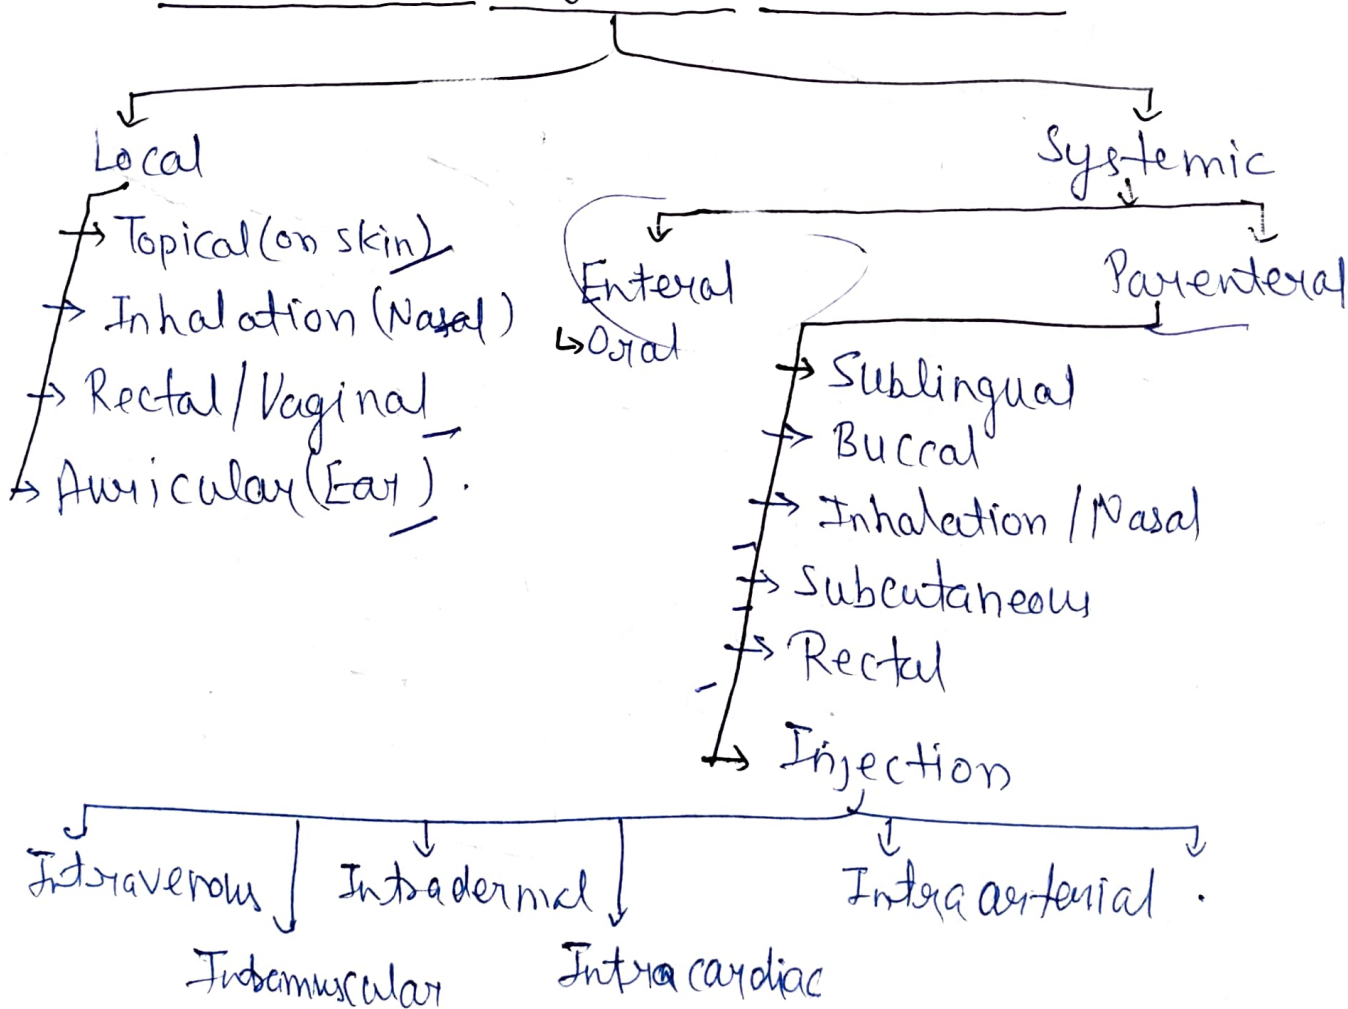 Local
Systemic
Topical (on skin)
Inhalation (Nasal)
Rectal / Vaginal
Auricular (Ear).
Enteral
Oral
Parenteral
Sublingual
Buccal
Inhalation / Nasal
Subcutaneous
Rectal
Injection
Intravenous
Intradermal
Intra arterial
Intramuscular
Intra cardiac